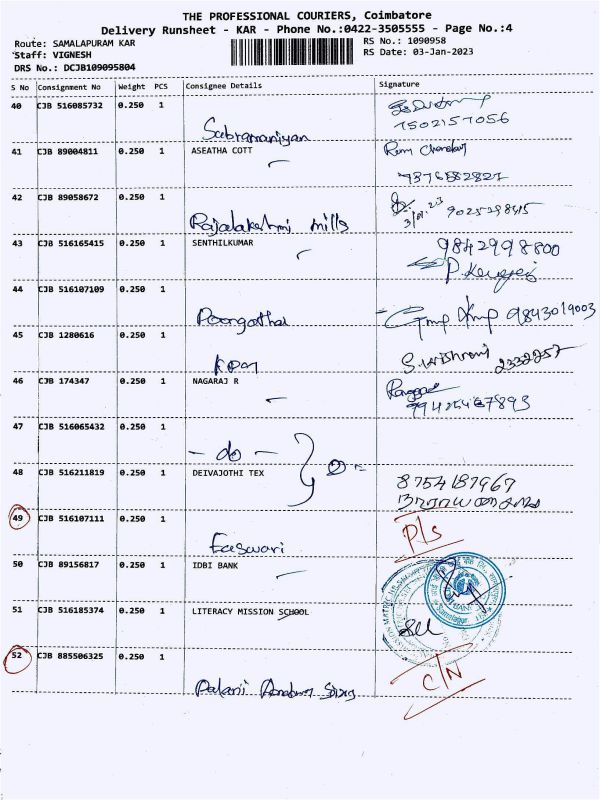 THE PROFESSIONAL COURIERS, Coimbatore
Delivery Runsheet - KAR - Phone No.:0422-3505555 - Page No.:4
Route: SAMALAPURAM KAR
RS No.: 1090958
Staff: VIGNESH
RS Date: 03-Jan-2023
DRS No.: DCJB109095804
S No Consignment No Weight PCS Consignee Details Signature
40 CJB 516085732 0.250 1
7502157056
Subramaniyan
41 CJB 89004811 0.250 1 ASEATHA COTT
42 CJB 89058672 0.250 1
Rajalakshmi mills
43 CJB 516165415 0.250 1 SENTHILKUMAR 9842998800
44 CJB 516107109 0.250 1
9843019003
45 CJB 1280616 0.250 1
46 CJB 174347 0.250 1 NAGARAJ R
47 CJB 516065432 0.250 1
- do -
48 CJB 516211819 0.250 1 DEIVAJOTHI TEX
8754187967
49 CJB 516107111 0.250 1
P/s
Easwari
50 CJB 89156817 0.250 1 IDBI BANK
51 CJB 516185374 0.250 1 LITERACY MISSION SCHOOL
52 CJB 885506325 0.250 1
C/N
Palani